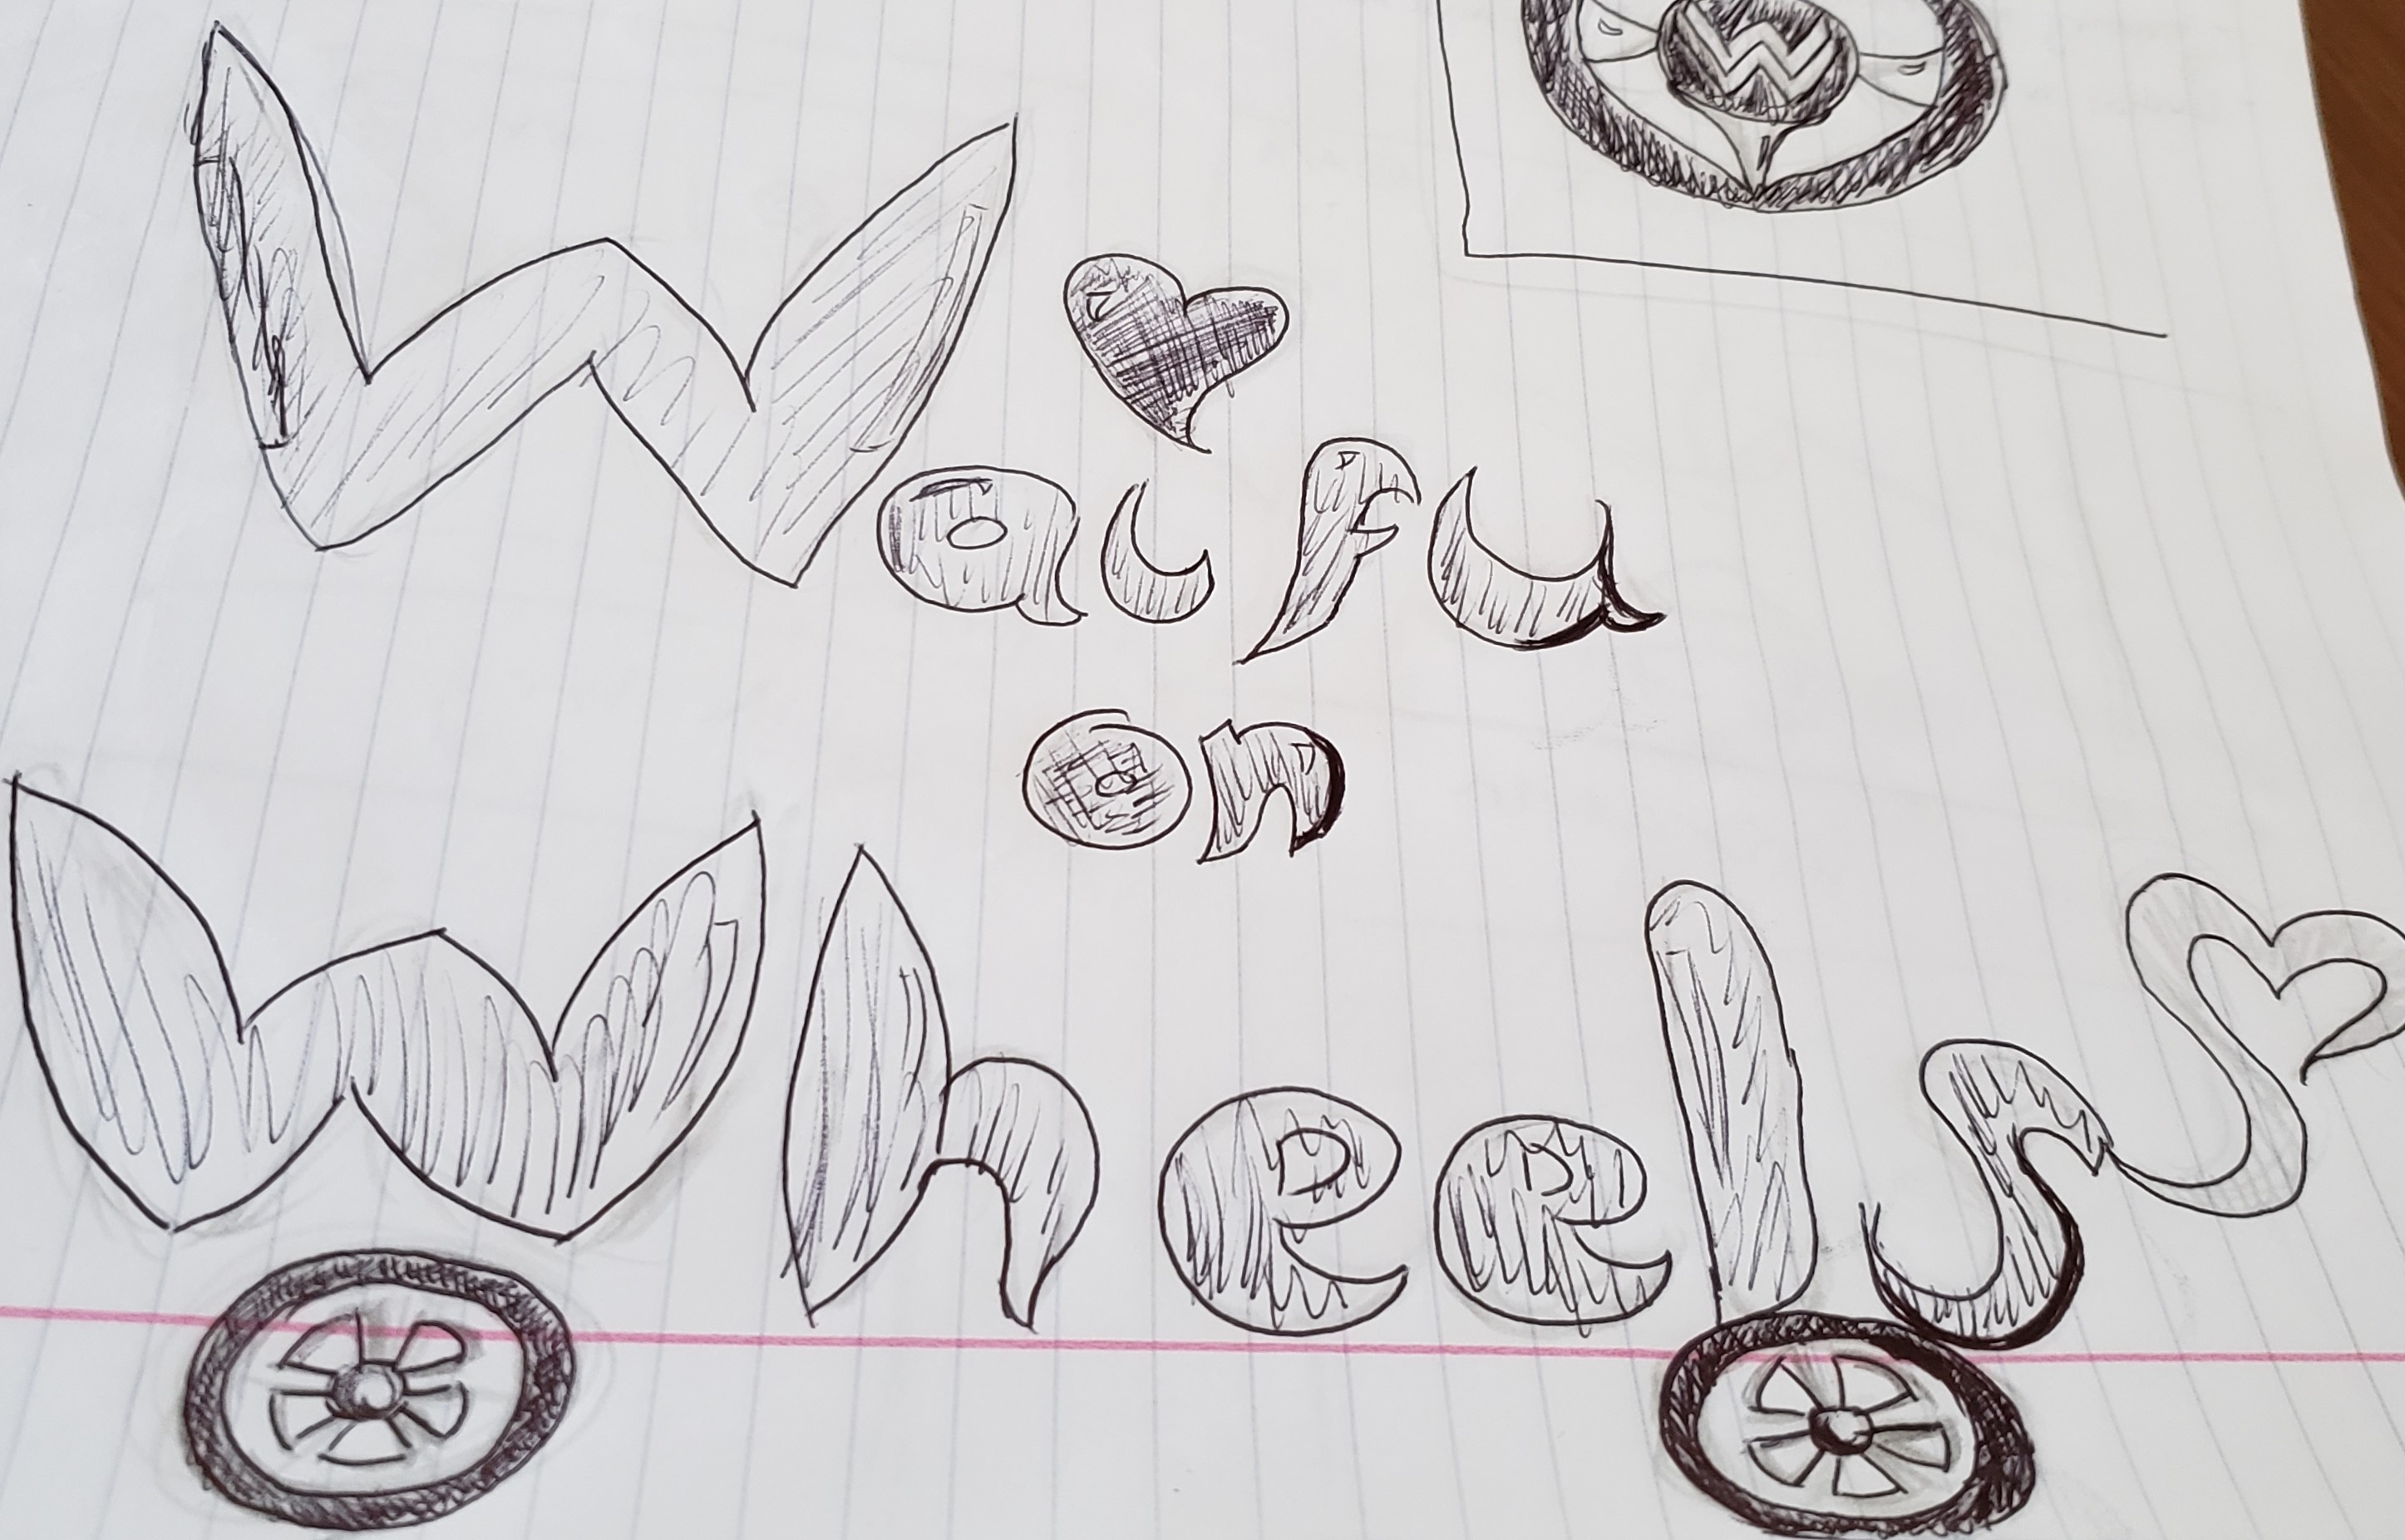 W
Waifu
on
Wheels